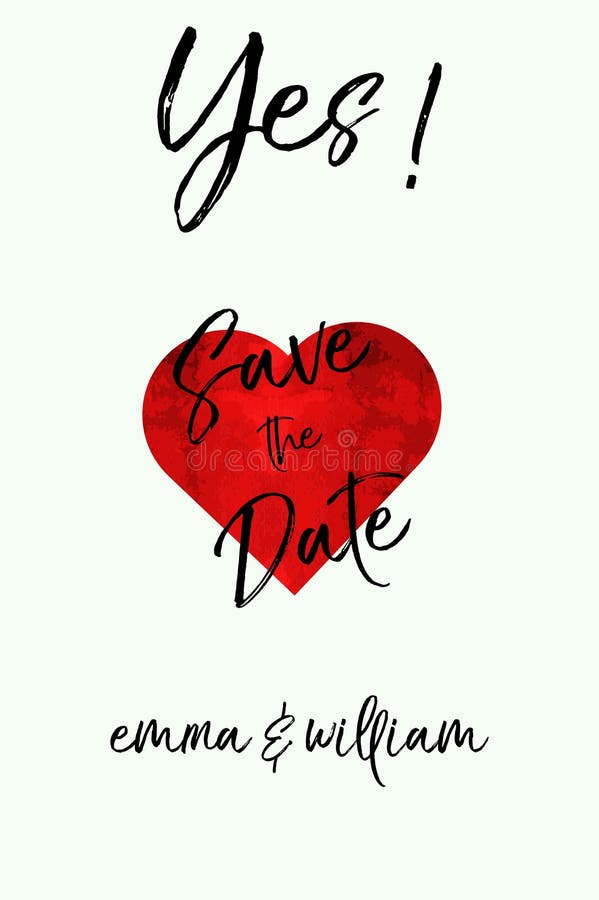 Yes!
Save
the
dreamstime.com
Date
emma & william